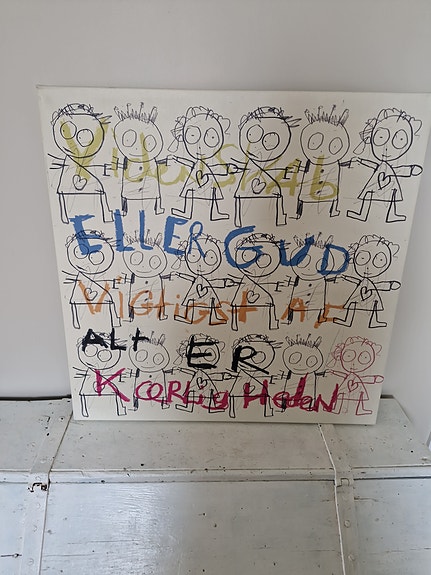 Videnskab
ELLER GUD
Vigtigst AF
ALt ER
Kærligheden